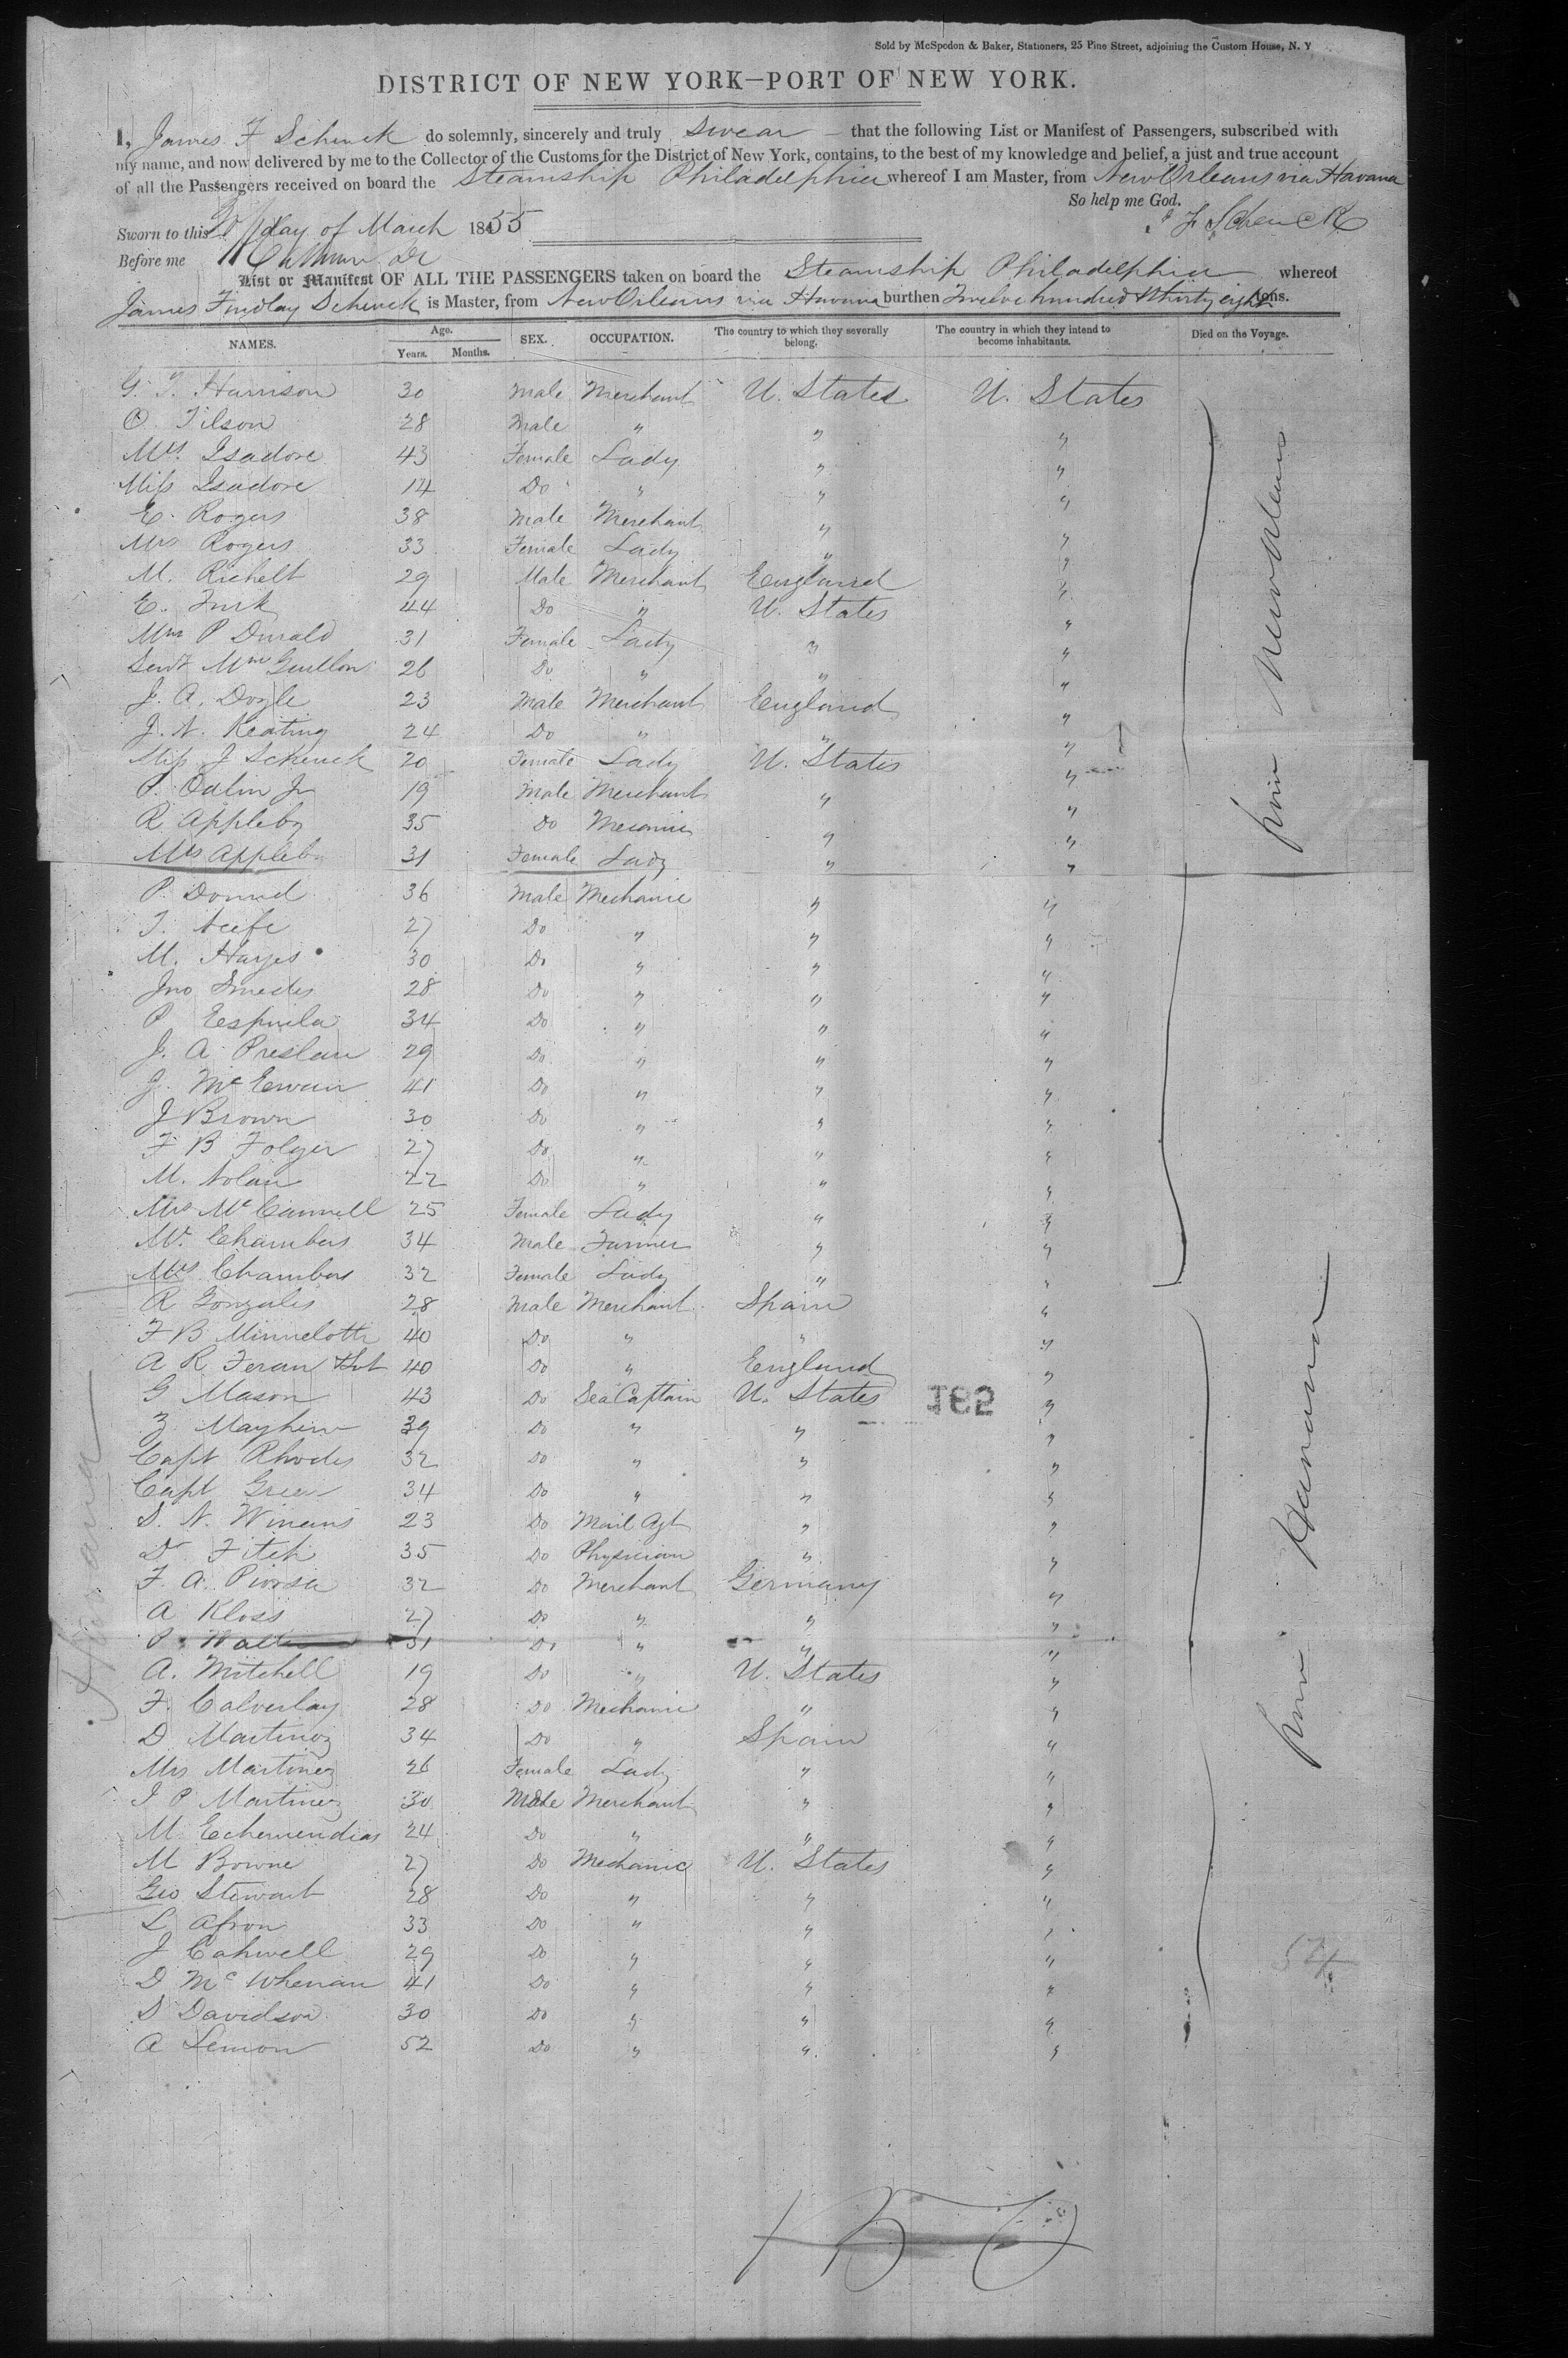 Sold by McSpedon & Baker, Stationers, 25 Pine Street, adjoining the Custom House, N. Y
DISTRICT OF NEW YORK—PORT OF NEW YORK.
I, James F Schenck do solemnly, sincerely and truly swear – that the following List or Manifest of Passengers, subscribed with
my name, and now delivered by me to the Collector of the Customs for the District of New York, contains, to the best of my knowledge and belief, a just and true account
of all the Passengers received on board the Steamship Philadelphia whereof I am Master, from New Orleans via Havana
So help me God.
Sworn to this day of March 1855 J F Schenck
Before me
List or Manifest OF ALL THE PASSENGERS taken on board the Steamship Philadelphia whereof
James Findlay Schenck is Master, from New Orleans via Havana burthen Twelve hundred & thirty eight tons.
NAMES. Age. Years. Months. SEX. OCCUPATION. The country to which they severally belong. The country in which they intend to become inhabitants. Died on the Voyage.
G. T. Harrison 30 Male Merchant U. States U. States
O. Tilson 28 Male " " "
Mrs. Isadore 43 Female Lady " "
Miss Isadore 14 Do " " "
E. Rogers 38 Male Merchant " "
Mrs Rogers 33 Female Lady " "
M. Richelt 29 Male Merchant England "
E. Turk 44 Do " U. States "
Mme P Durald 31 Female Lady " "
Servt Mme Guillon 26 Do " " "
J. A. Doyle 23 Male Merchant England "
J. N. Keating 24 Do " " "
Miss J Schenck 20 Female Lady U. States "
P. Oalin Jr 19 Male Merchant " "
R Appleby 35 Do Mecanic " "
Mrs Appleby 31 Female Lady " "
P. 36 Male Mechanic " "
T. Keefe 27 Do " " "
M. Hayes 30 Do " " "
Jno Smedes 28 Do " " "
P Espuela 34 Do " " "
J. A Preslau 29 Do " " "
J. McEwain 41 Do " " "
J Brown 30 Do " " "
F B Folger 27 Do " " "
M. Nolan 22 Do " " "
Mrs McCannell 25 Female Lady " "
Mr. Chambers 34 Male Farmer " "
Mrs Chambers 32 Female Lady " "
from New Orleans
R Gonzales 28 Male Merchant Spain "
F B Minneloth 40 Do " " "
A R Teran 40 Do " England "
G Mason 43 Do Sea Captain U. States "
Z Mayhew 39 Do " " "
Capt Rhodes 32 Do " " "
Capt Green 34 Do " " "
S. N. Winans 23 Do Mail Agt " "
Dr Fitch 35 Do Physician " "
F. A. 32 Do Merchant Germany "
A Kloss 27 Do " " "
P. 31 Do " " "
A. Mitchell 19 Do " U. States "
F. Calverlay 28 Do Mechanic " "
D Martinez 34 Do " Spain "
Mrs Martinez 26 Female Lady " "
J P Martinez 30 Male Merchant " "
M Echemendias 24 Do " " "
M Bowne 27 Do Mechanic U. States "
Geo Stewart 28 Do " " "
L 33 Do " " "
J Cahwell 29 Do " " "
D McWhenan 41 Do " " "
S Davidson 30 Do " " "
A Lemon 52 Do " " "
from Havana
Havana
54